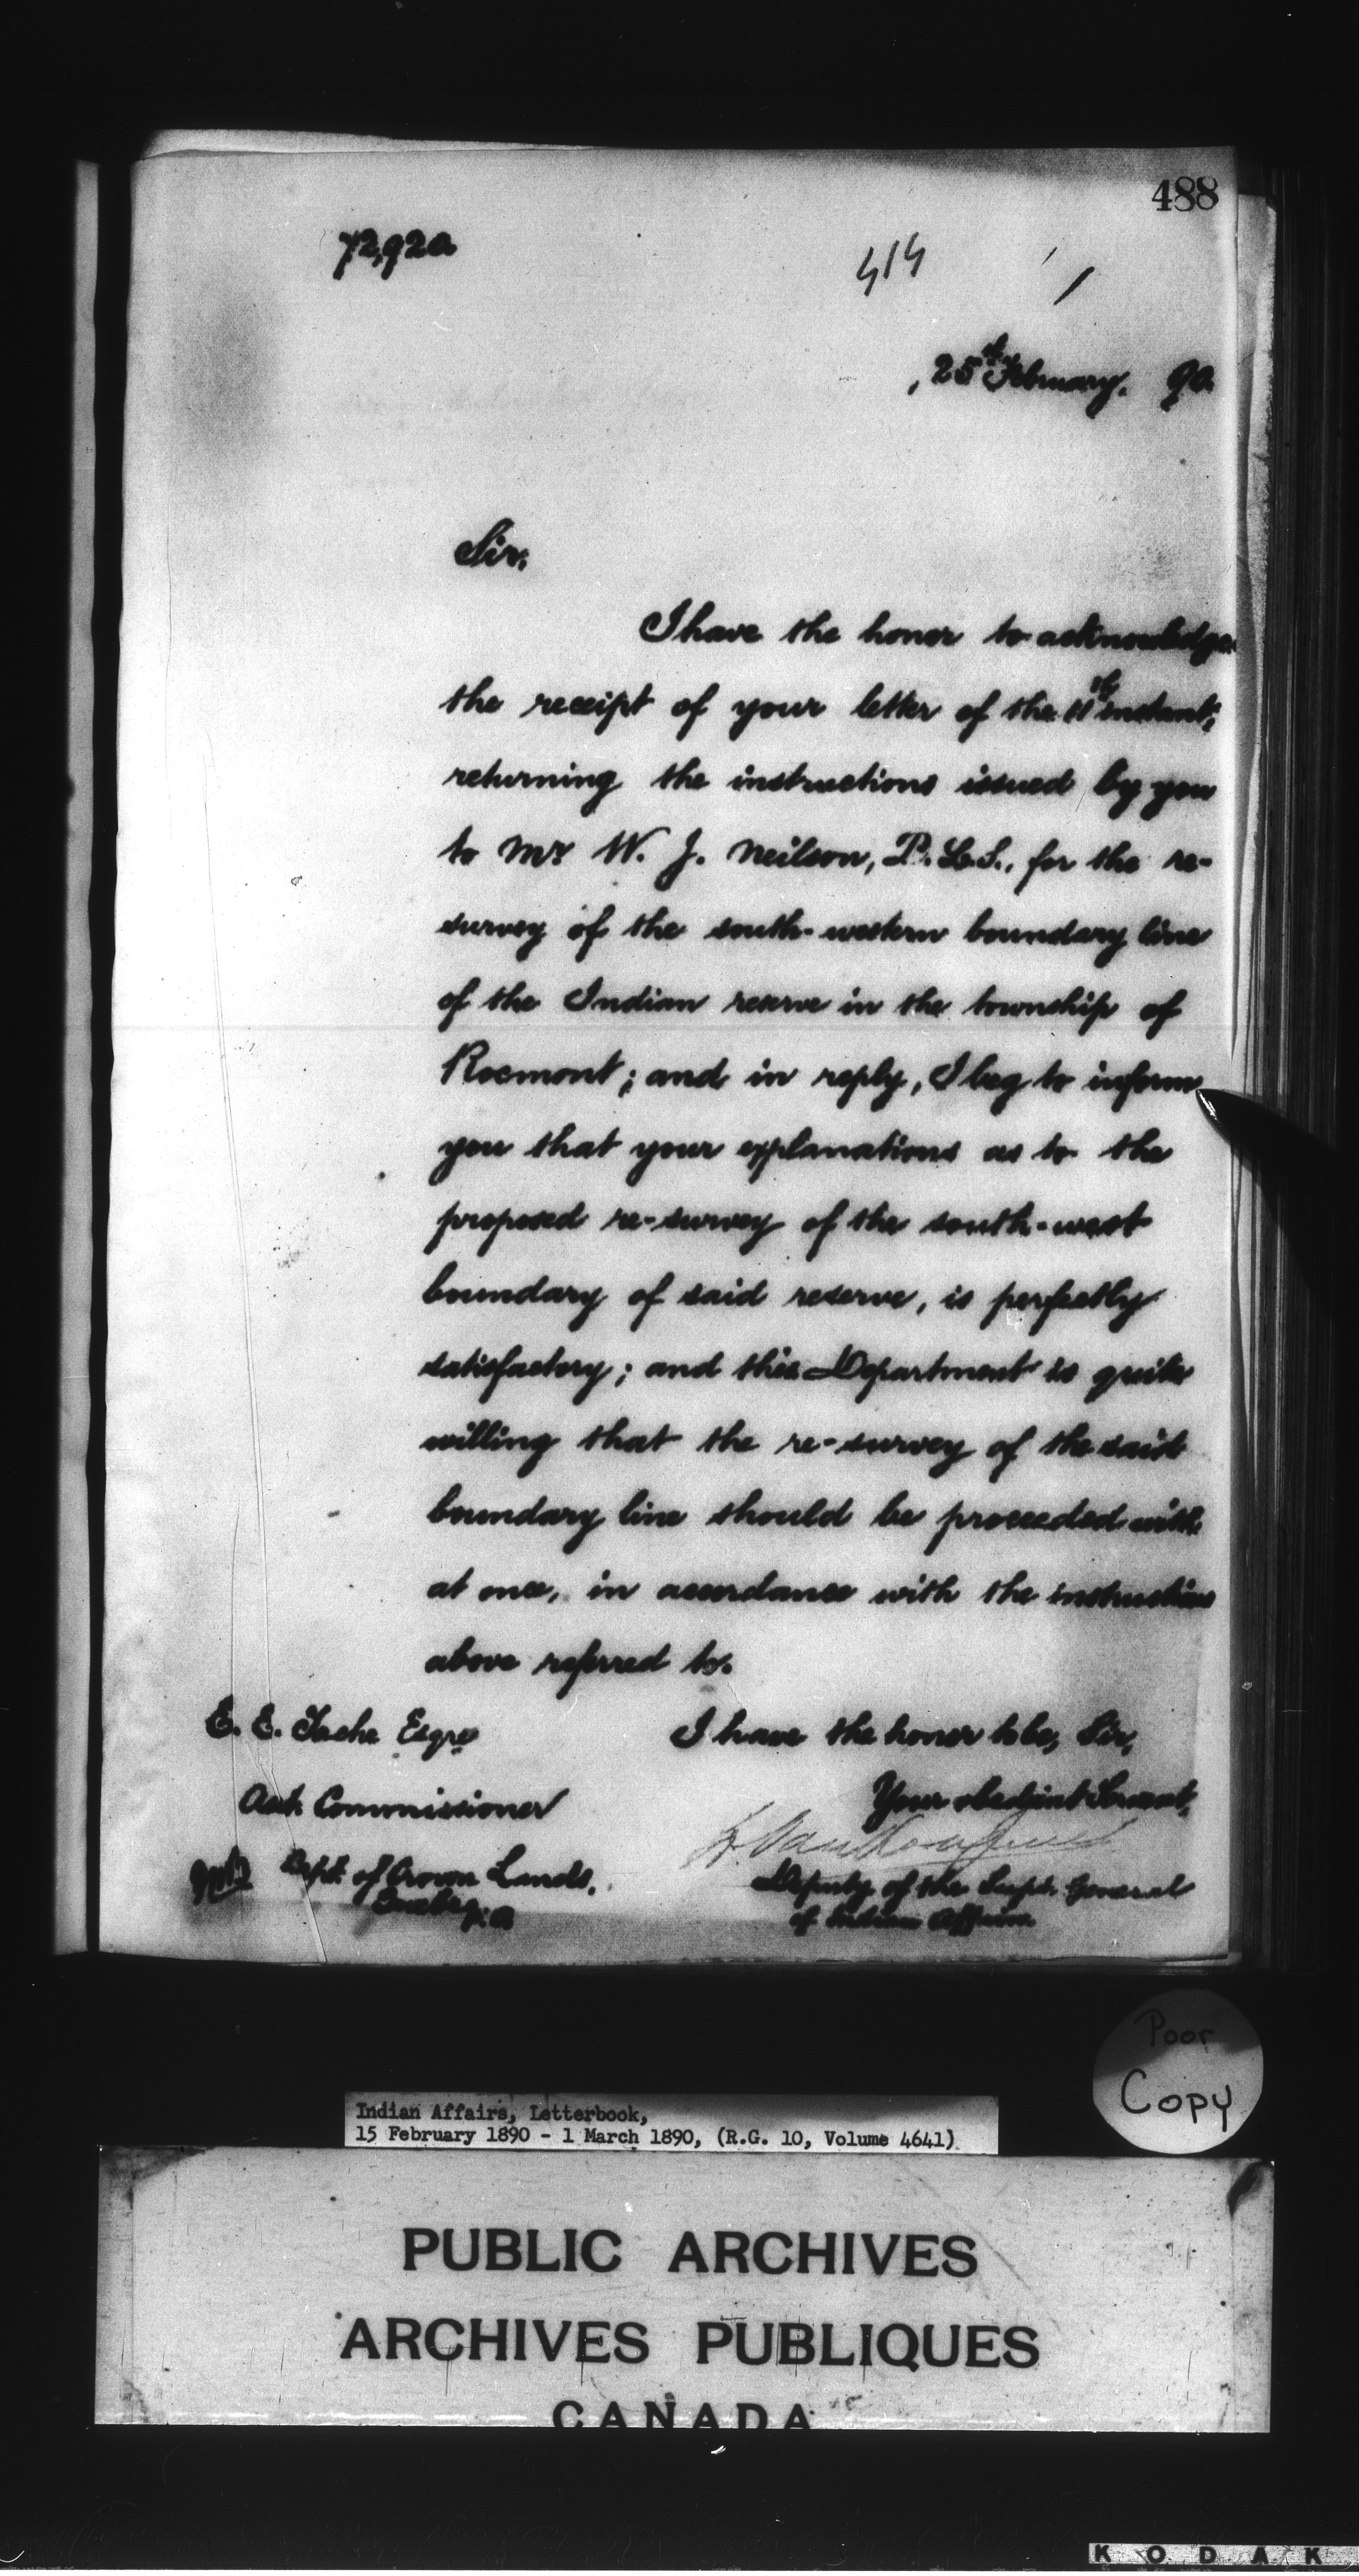 488
72,920
414
25th February, 90.
Sir,
I have the honor to acknowledge
the receipt of your letter of the 11th instant,
returning the instructions issued by you
to Mr W. J. Neilson, P.L.S., for the re-
survey of the south-western boundary line
of the Indian reserve in the township of
Rocmont; and in reply, I beg to inform
you that your explanations as to the
proposed re-survey of the south-west
boundary of said reserve, is perfectly
satisfactory; and this Department is quite
willing that the re-survey of the said
boundary line should be proceeded with
at once, in accordance with the instructions
above referred to.
E. E. Tache Esqre
I have the honor to be, Sir,
Asst. Commissioner
Your obedient Servant,
L. Vankoughnet
Dept. of Crown Lands,
Quebec, P.Q.
Deputy of the Supt. General
of Indian Affairs
Poor
Copy
Indian Affairs, Letterbook,
15 February 1890 - 1 March 1890, (R.G. 10, Volume 4641)
PUBLIC ARCHIVES
ARCHIVES PUBLIQUES
CANADA
KODAK